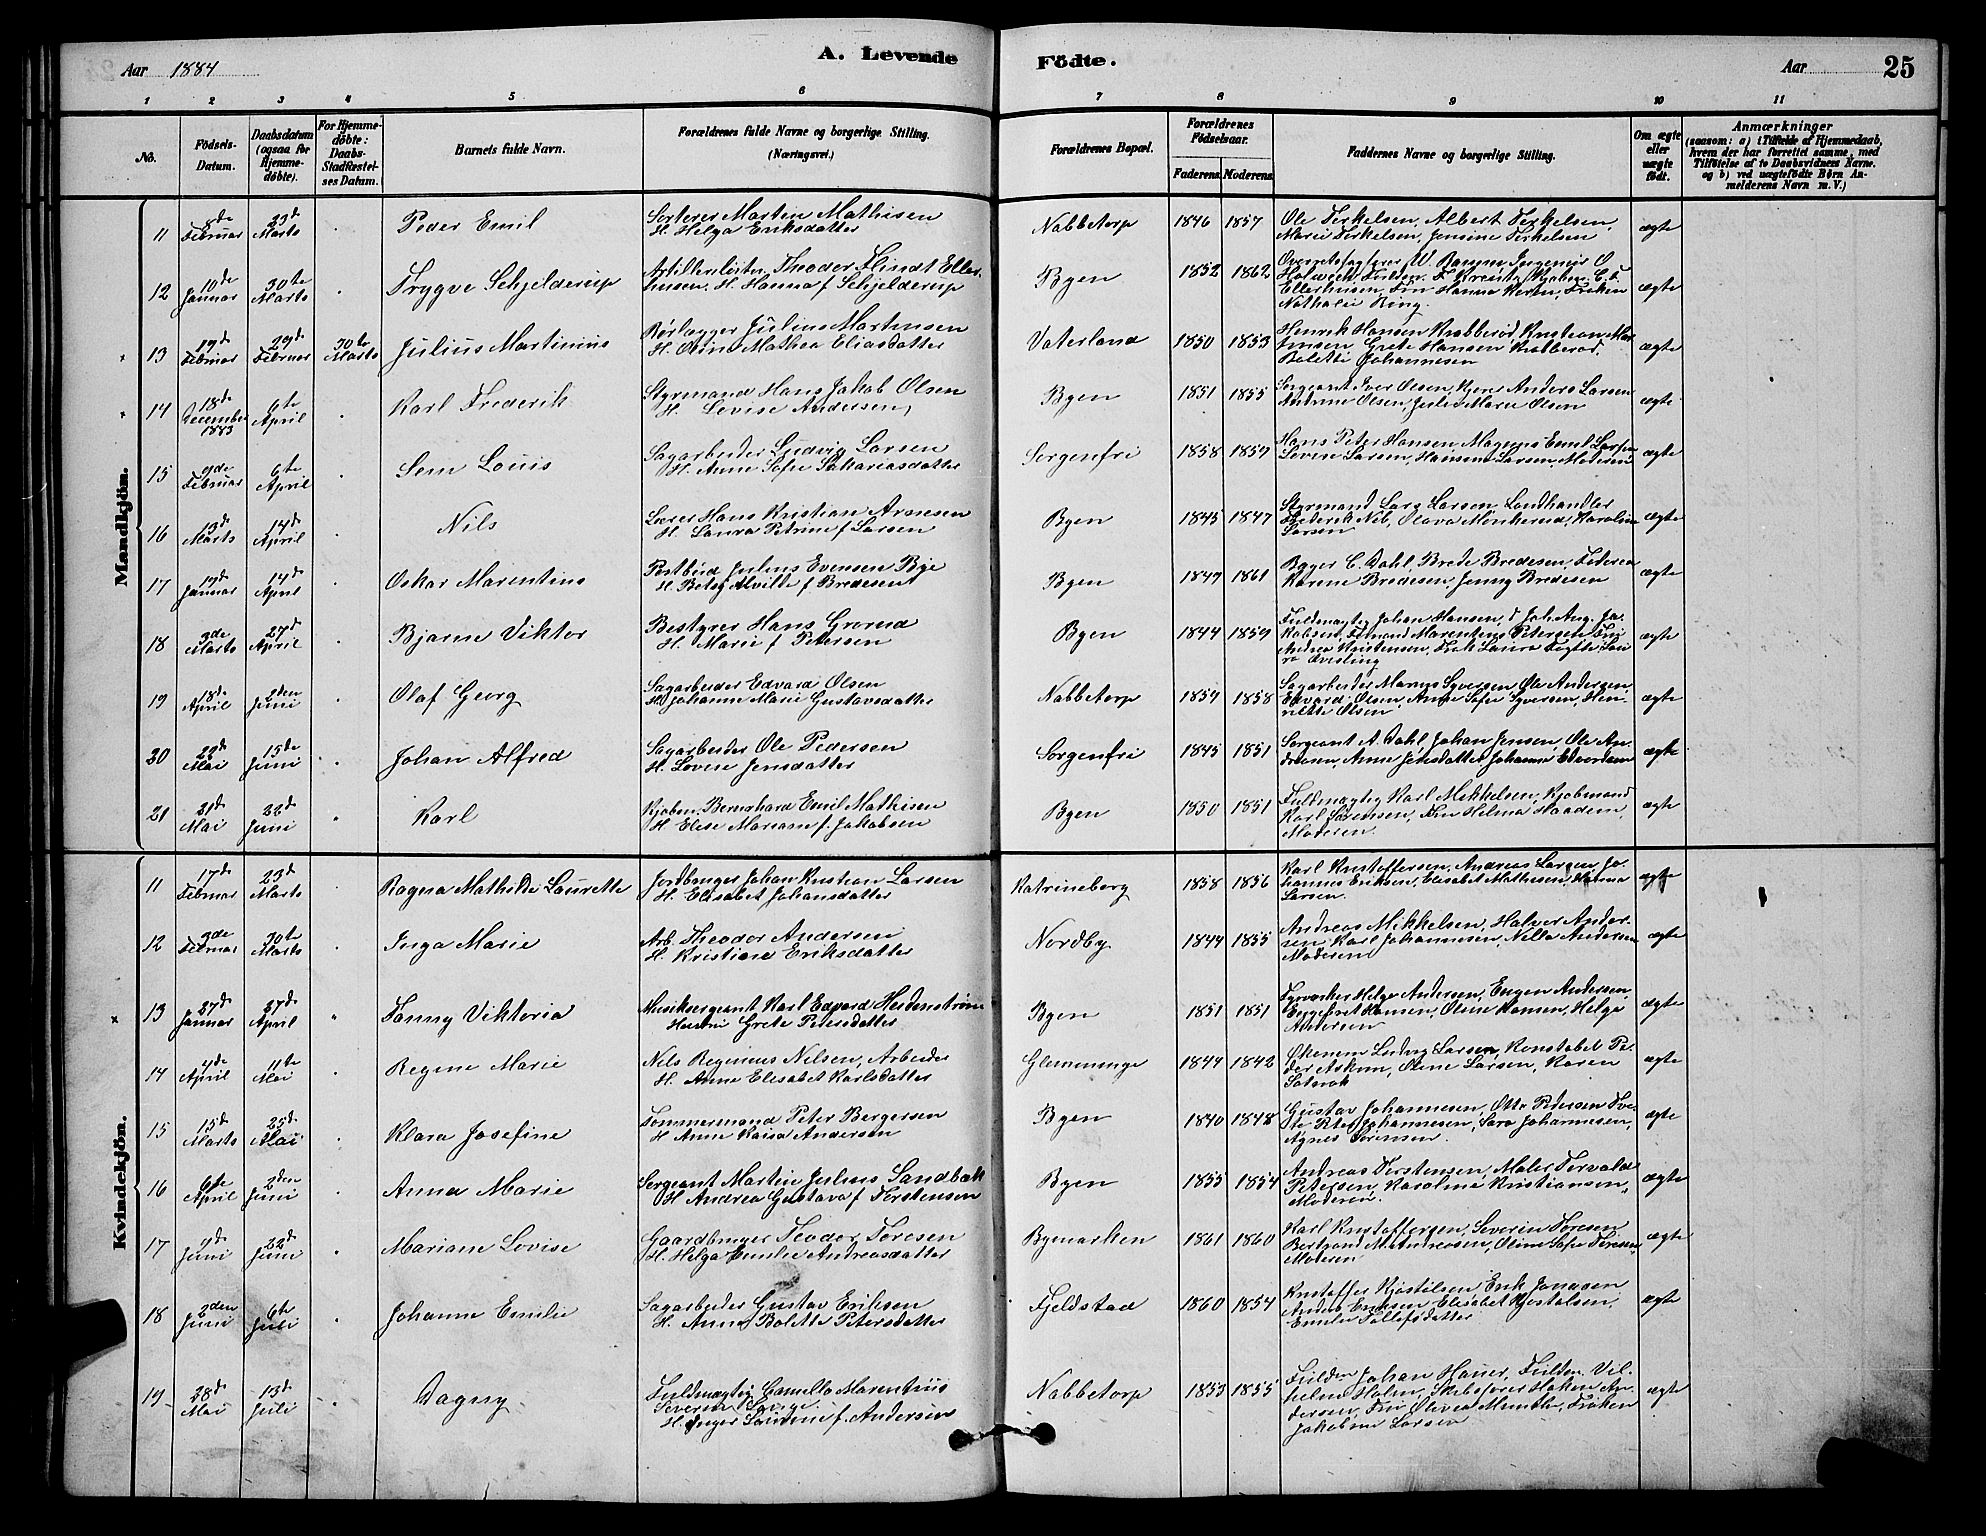 Aar 1884
A. Levende Födte.
Aar 25
1 2 3 4 5 6 7 8 9 10 11
No.
Födsels-Datum.
Daabsdatum (ogsaa for Hjemmedöbte).
For Hjemmedöbte: Daabs-Stadfæstelses Datum.
Barnets fulde Navn.
Forældrenes fulde Navne og borgerlige Stilling.
(Næringsvei.)
Forældrenes Bopæl.
Forældrenes Födselsaar.
Faderens. Moderens.
Faddernes Navne og borgerlige Stilling.
Om ægte eller uægte födt.
Anmærkninger
(saasom: a) i Tilfælde af Hjemmedaab,
hvem der har forrettet samme, med
Tilföielse af to Daabsvidners Navne.
og b) ved uægtefödte Börn Anmelderens Navn m. V.)
Mandkjön.
11 8de Februar 23d Marts Peder Emil Sorterer Martin Mathisen
H. Helga Eriksdatter Nabbetorp 1846 1857 Ole Terkelsen, Albert Terkelsen,
Marie Terkelsen, Jensine Terkelsen ægte
12 10de Januar 30te Marts Trygve Schjelderup Theodor Flindt Eller
husen. H. Hanna f Schjelderup Byen 1852 1862 ægte
Nathalie Ring.
13 19d Februar 29d Februar 30te Marts Julius Martinius Rørlægger Julius Martinsen
H. Mathea Eliasdatter Vaterland 1850 1853 Henrik Hansen Krabberød, Kristian Mar
tinsen, Grete Hansen Krabberød,
Bolette Johannesen ægte
14 18d December 1883 6te April Karl Frederik Styrmand Hans Jakob Olsen
H. Lovise Andersen Byen 1851 1855 Sergeant Iver Olsen, Anders Larsen
Andrine Olsen, Julie Marie Olsen ægte
15 9de Februar 6te April Sem Louis Sagarbeider Ludvig Larsen
H. Anne Sofie Sakariasdatter Sorgenfri 1858 1857 Hans Peter Hansen, Magnus Emil Larsen
Lovise Larsen, Larsen, Moderen ægte
16 13d Marts 14d April Nils Lærer Hans Kristian Arnesen
H. Laura Petrine f Larsen Byen 1845 1847 Styrmand Lars Larsen, Landhandler
Frederik Olava Karoline
Larsen ægte
17 Januar 14d April Oskar Marentius Postbud Julius Evensen Bye
H. Betsy Alvilde f Bredesen Byen 1847 1861 C. Dahl, Brede Bredesen,
Karene Bredesen, Jenny Bredesen ægte
18 3de Marts 27d April Bjarne Viktor Bestyrer Hans Grorud
H. Marie f Petersen Byen 1844 1859 Fuldmægtig Johan Hansen, Joh. Aug. Ja
kobsen, Marentius Petersen
Andrea Kristensen, Laura ægte
19 18de April 2den Juni Olaf Georg Sagarbeider Edvard Olsen
H. Johanne Marie Gustavsdatter Nabbetorp 1854 1858 Sagarbeider Syversen, Ole Andersen,
Edvard Olsen, Anne Sofie Syversen, Hen
riette Olsen ægte
20 22d Mai 15de Juni Johan Alfred Sagarbeider Ole Pedersen
H. Lovise Jensdatter Sorgenfri 1845 1851 Sergeant A. Dahl, Johan Jensen, Ole An
dresen, Anne Jensdatter, Johanne Edvardsen ægte
21 21d Mai 22d Juni Karl Kjøbm. Bernhard Emil Mathisen
H. Elise Mariane f. Jakobsen Byen 1850 1851 Fuldmægtig Karl Mikkelsen, Kjøbmand
Karl Sørensen, Helma Haaden,
Moderen. ægte
Kvindekjön.
11 17d Februar 23d Marts Ragna Mathilde Laurette Jordbruger Johan Kristian Larsen
H. Elisabet Johansdatter Katrineborg 1858 1856 Karl Kristoffersen, Andreas Larsen, Jo
hannes Eriksen, Elisabet Mathisen,
Larsen. ægte
12 Februar 30te Marts Inga Marie Arb. Theodor Andersen
H. Kristiane Eriksdatter Nordby 1844 1855 Andreas Mikkelsen, Halvor Ander
sen Karl Johannesen, Nilla Andersen
Moderen ægte
13 27d Januar 27d April Fanny Viktoria Musiksergeant Karl Edvard Heidenstrøm
Hustru Grete Petersdatter Byen 1851 1851 Fyrvogter Helge Andersen, Eugen Andersen,
Hansen, Oline Hansen, Helga
Andersen ægte
14 4de April 11te Mai Regine Marie Nils Regimius Nilsen, Arbeider
H. Anne Elisabet Karlsdatter Glemminge 1844 1842 Ludvig Larsen, Konstabel Pe
der Askim, Oline Larsen, Karen
ægte
15 15d Marts 25d Mai Klara Josefine Tømmermand Peter Bergersen
H. Anne Kaisa Andersen Byen 1840 1848 Gustav Johannesen, Otto Pedersen
Johannesen, Sara Johannesen,
Agnes Sørensen. ægte
16 6te April 2den Juni Anna Marie Sergeant Martin Julius Sandbæk
H. Andrea Gustava f Torstensen Byen 1855 1854 Andreas Torstensen, Maler Torvald
Petersen, Karoline Kristiansen,
Moderen. ægte
17 4d Juni 22d Juni Mariane Lovise Gaardbruger Teodor Toresen
H. Helga Emilie Andreasdatter Bymarken 1861 1860 Karl Kristoffersen, Severin Toresen
Bertrand M. Andreasen, Oline Sofie Toresen
Moderen ægte
18 2den Juni 6te Juli Johanne Emilie Sagarbeider Gustav Eriksen
H. Anna Bolette Petersdatter Fjeldstad 1860 1854 Kristoffer Kjøstolsen, Erik Jonassen
Anders Eriksen, Elisabet Kjøstolsen,
Emilie Tollefsdatter ægte
19 28d Mai 13d Juli Dagny Fuldmægtig Camello Marentius
Severin Lange.
H. Inger f. Andersen Nabbetorp 1853 1855 Johan Hauer, Vil
helm Holm, Skibsfører Haken An
dersen, Fru Olivia Munthe, Frøken
Jakobine Larsen ægte